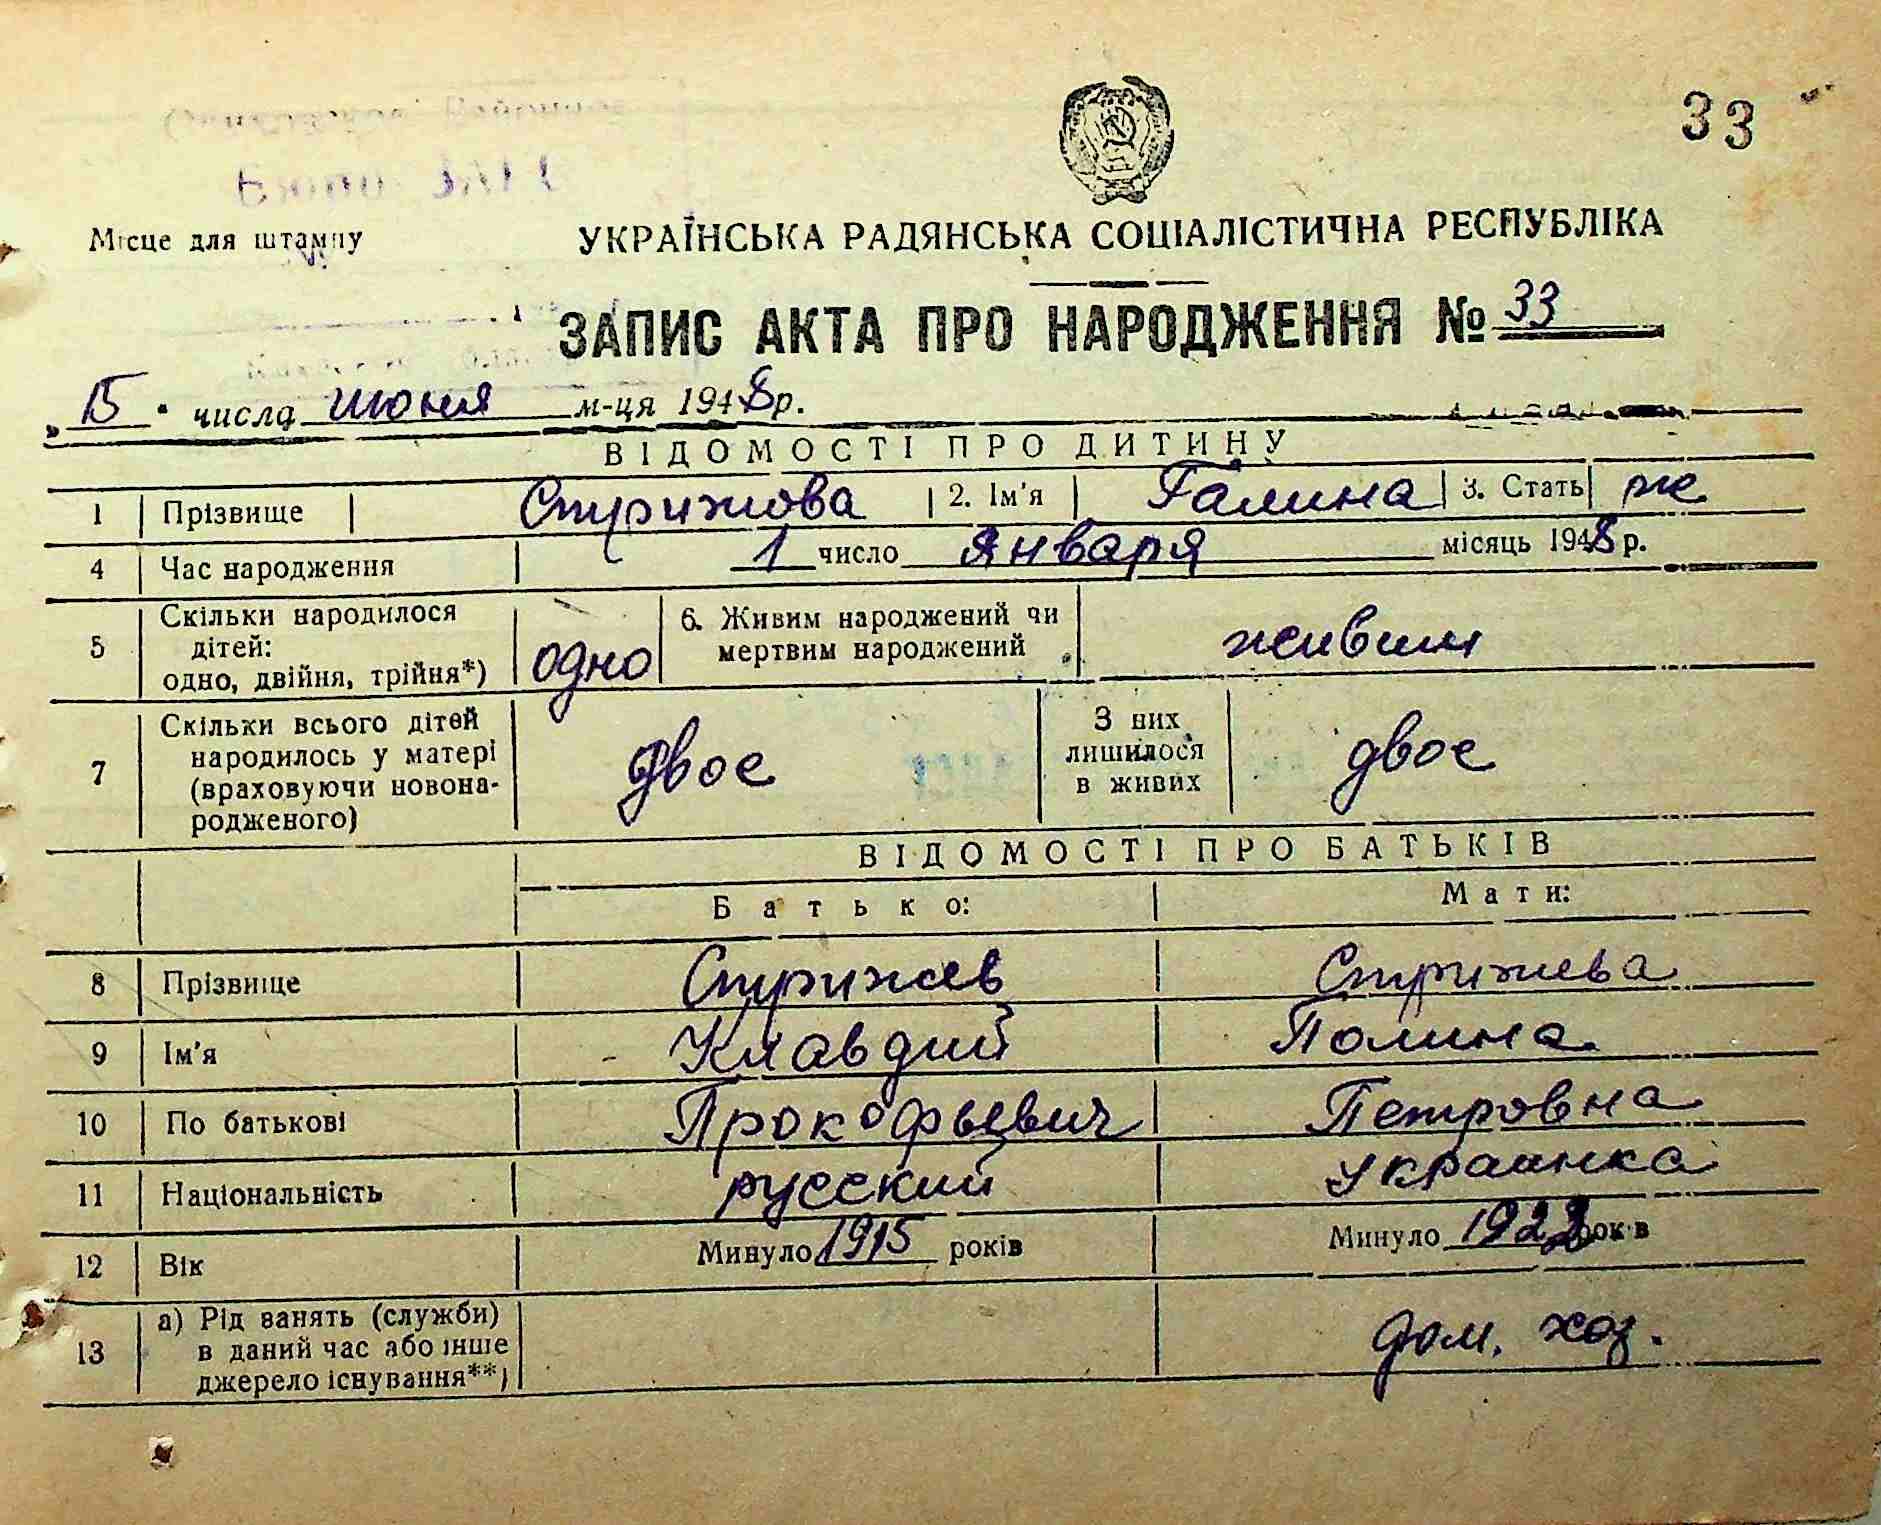 33
Місце для штампу
УКРАЇНСЬКА РАДЯНСЬКА СОЦІАЛІСТИЧНА РЕСПУБЛІКА
ЗАПИС АКТА ПРО НАРОДЖЕННЯ № 33
„15" числа июня м-ця 1948 р.
ВІДОМОСТІ ПРО ДИТИНУ
1 Прізвище Стрижова 2. Ім'я Галина 3. Стать ж
4 Час народження 1 число Января місяць 1948 р.
5 Скільки народилося дітей: одно, двійня, трійня*) одно 6. Живим народжений чи мертвим народжений живим
7 Скільки всього дітей народилось у матері (враховуючи новонародженого) двое З них лишилося в живих двое
ВІДОМОСТІ ПРО БАТЬКІВ
Батько: Мати:
8 Прізвище Стрижев Стрижева
9 Ім'я Клавдий Полина
10 По батькові Прокофьевич Петровна
11 Національність русский украинка
12 Вік Минуло 1915 років Минуло 1922 років
13 а) Рід занять (служби) в даний час або інше джерело існування**) дом. хоз.